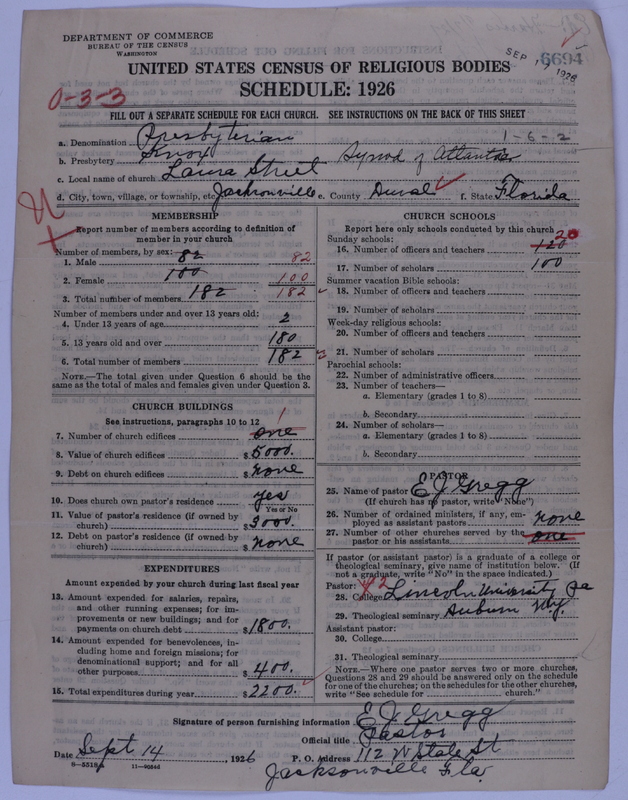 DEPARTMENT OF COMMERCE
BUREAU OF THE CENSUS
WASHINGTON
SEP 1926
6694
UNITED STATES CENSUS OF RELIGIOUS BODIES
SCHEDULE: 1926
0-3-3
FILL OUT A SEPARATE SCHEDULE FOR EACH CHURCH. SEE INSTRUCTIONS ON THE BACK OF THIS SHEET
1-6-2
a. Denomination Presbyterian
b. Presbytery Knox Synod of Atlantic
c. Local name of church Laura Street
d. City, town, village, or township, etc Jacksonville e. County Duval f. State Florida
MEMBERSHIP
Report number of members according to definition of member in your church
Number of members, by sex:
1. Male 82 82
2. Female 100 100
3. Total number of members 182 182
Number of members under and over 13 years old:
4. Under 13 years of age 2
5. 13 years old and over 180
6. Total number of members 182
NOTE.—The total given under Question 6 should be
same as the total of males and females given under Question 3.
CHURCH BUILDINGS
See instructions, paragraphs 10 to 12
7. Number of church edifices one 1
8. Value of church edifices $ 5000.
9. Debt on church edifices $ none
10. Does church own pastor's residence yes
Yes or No
11. Value of pastor's residence (if owned by
church) $ 3000.
12. Debt on pastor's residence (if owned by
church) $ none
EXPENDITURES
Amount expended by your church during last fiscal year
13. Amount expended for salaries, repairs,
and other running expenses; for im-
provements or new buildings; and for
payments on church debt $ 1800.
14. Amount expended for benevolences, in-
cluding home and foreign missions; for
denominational support; and for all
other purposes $ 400.
15. Total expenditures during year $ 2200.
CHURCH SCHOOLS
Report here only schools conducted by this church
Sunday schools:
16. Number of officers and teachers 120 20
17. Number of scholars 100
Summer vacation Bible schools:
18. Number of officers and teachers
19. Number of scholars
Week-day religious schools:
20. Number of officers and teachers
21. Number of scholars
Parochial schools:
22. Number of administrative officers
23. Number of teachers—
a. Elementary (grades 1 to 8)
b. Secondary
24. Number of scholars—
a. Elementary (grades 1 to 8)
b. Secondary
PASTOR
25. Name of pastor E J Gregg
(If church has no pastor, write "None")
26. Number of ordained ministers, if any, em-
ployed as assistant pastors none
27. Number of other churches served by the
pastor or his assistants one
If pastor (or assistant pastor) is a graduate of a college or
theological seminary, give name of institution below. (If
not a graduate, write "No" in the space indicated.)
Pastor:
28. College Lincoln University Pa
29. Theological seminary Auburn N.Y.
Assistant pastor:
30. College
31. Theological seminary
NOTE.—Where one pastor serves two or more churches,
Questions 28 and 29 should be answered only on the schedule
for one of the churches; on the schedules for the other churches,
write "See schedule for church."
Signature of person furnishing information E J Gregg
Official title Pastor
Date Sept 14, 1926 P. O. Address 112 W State St
Jacksonville Fla.